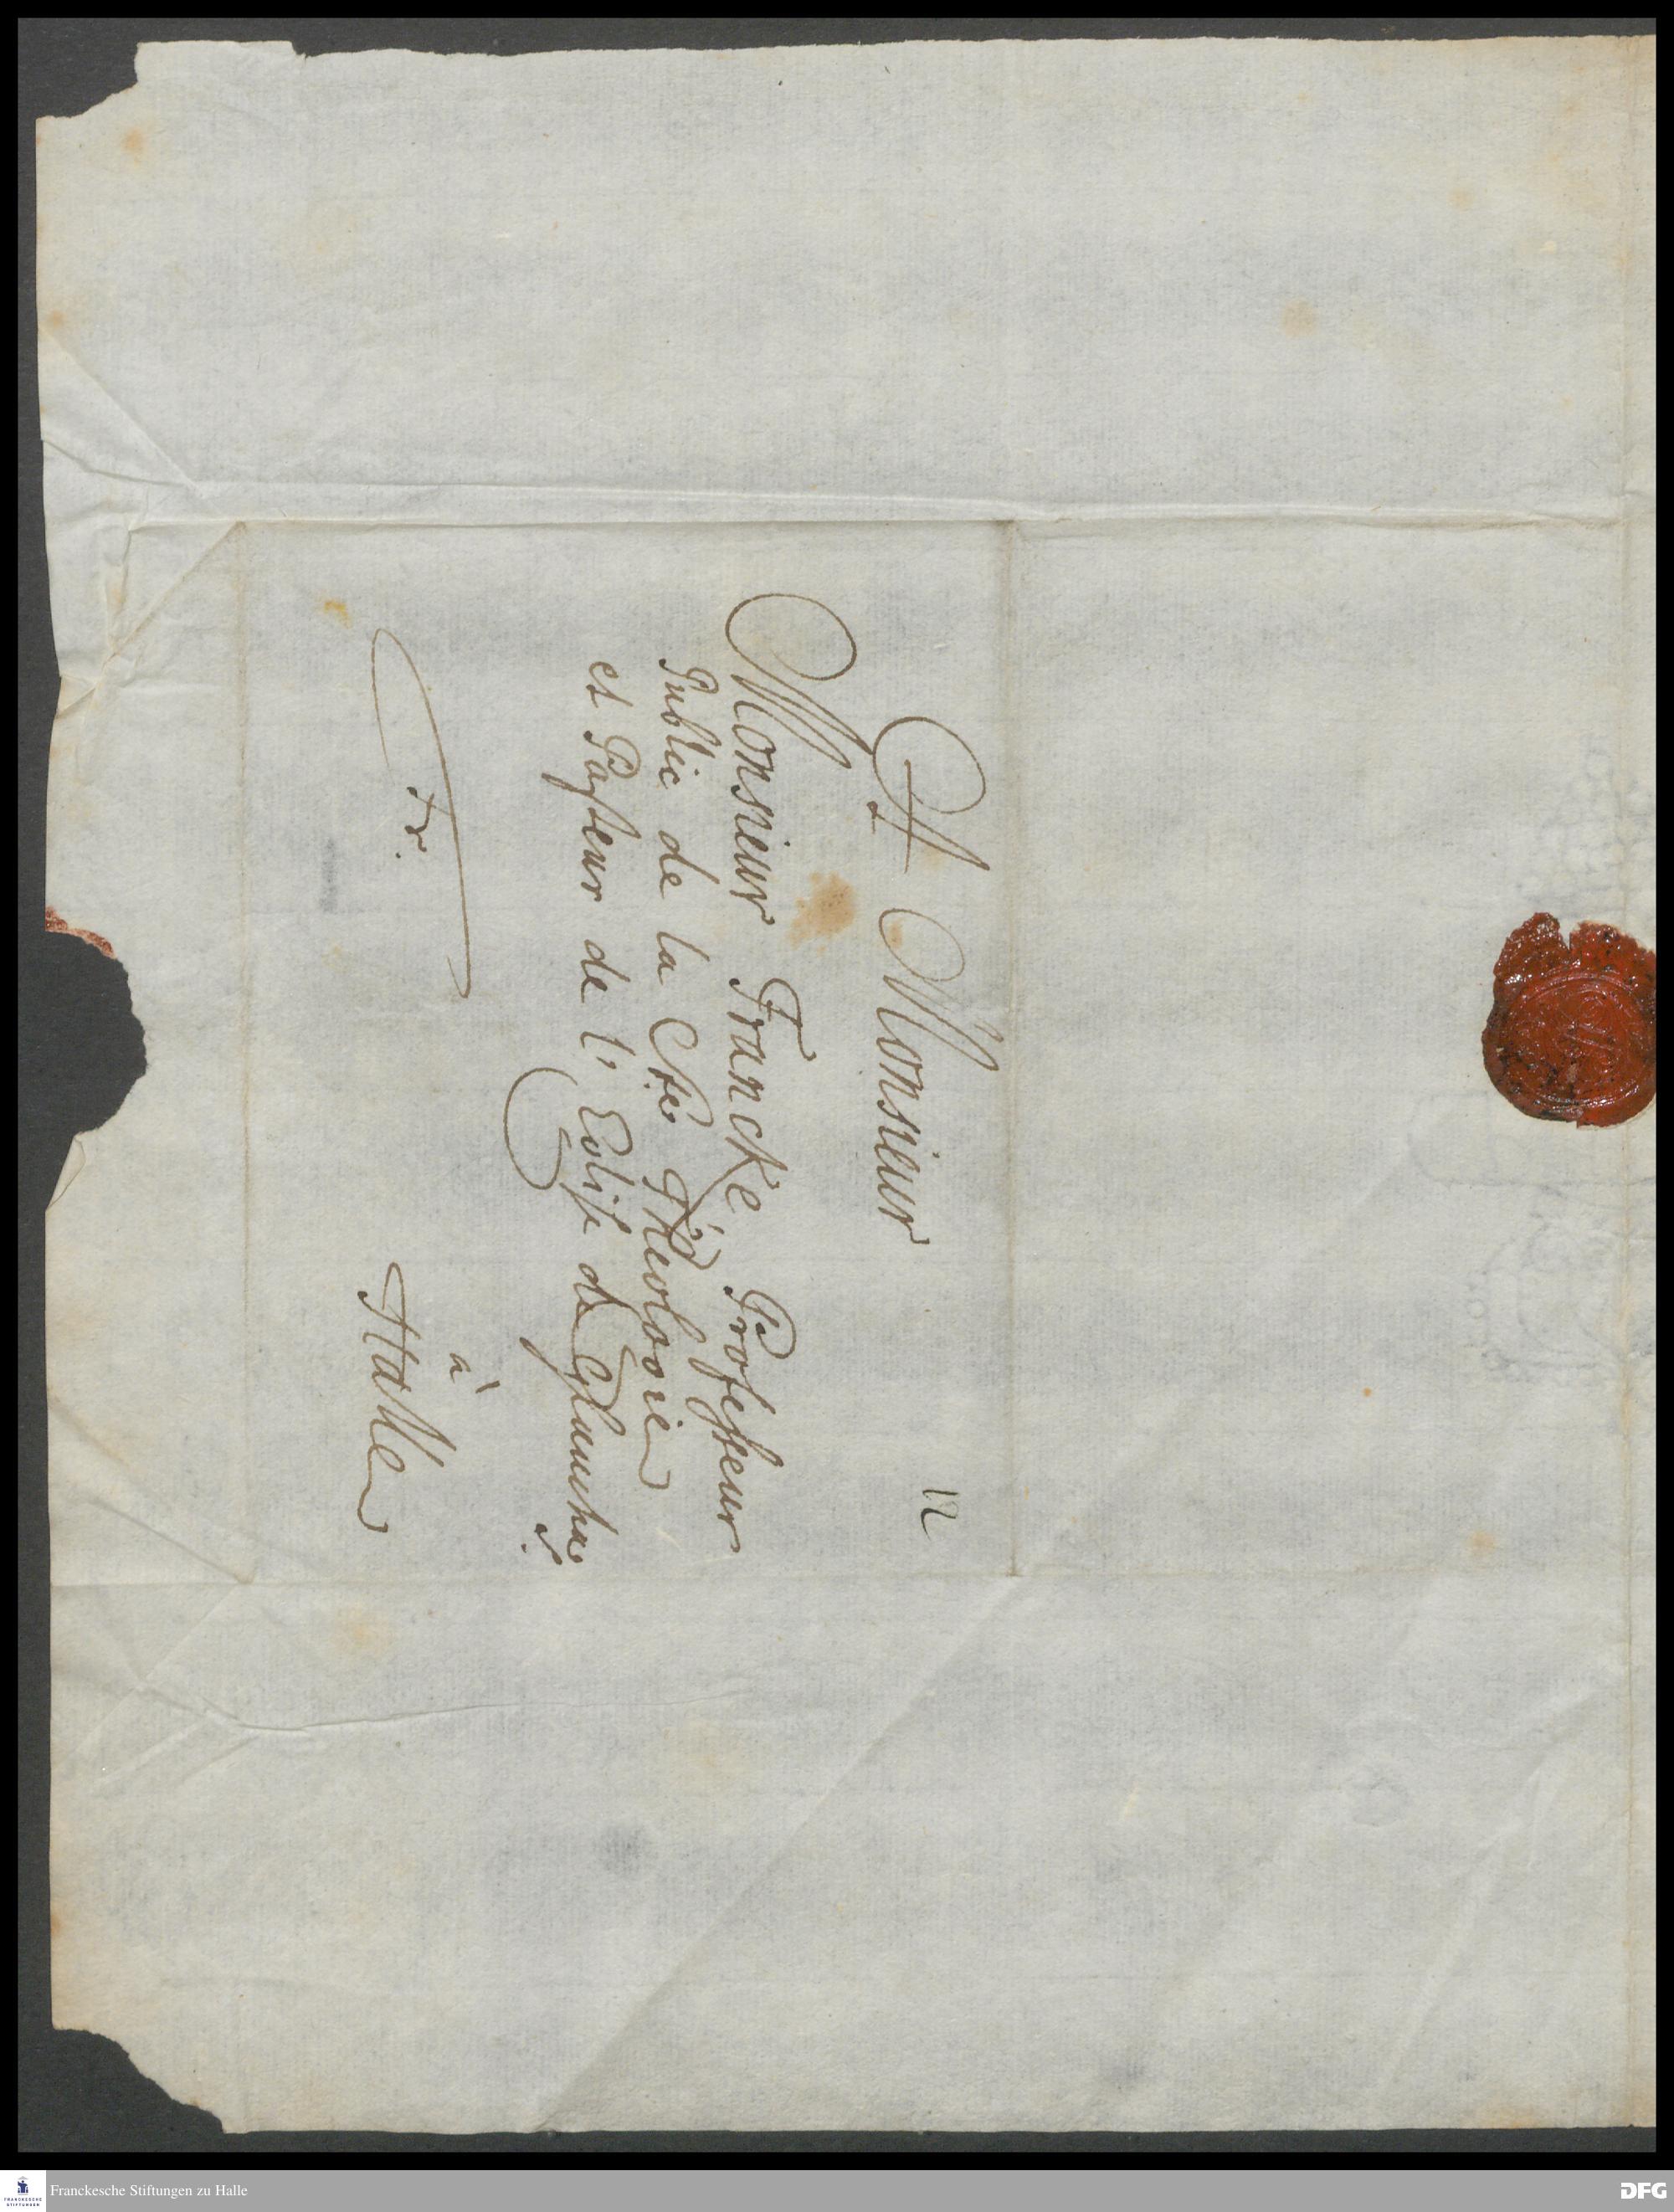 12
A Monsieur
Monsieur Francke Professeur
Public de la Ste Theologie
et Pasteur de l'Eglise de Glaucha
à
fr. Halle
Franckesche Stiftungen zu Halle
FRANCKESCHE
STIFTUNGEN
DFG